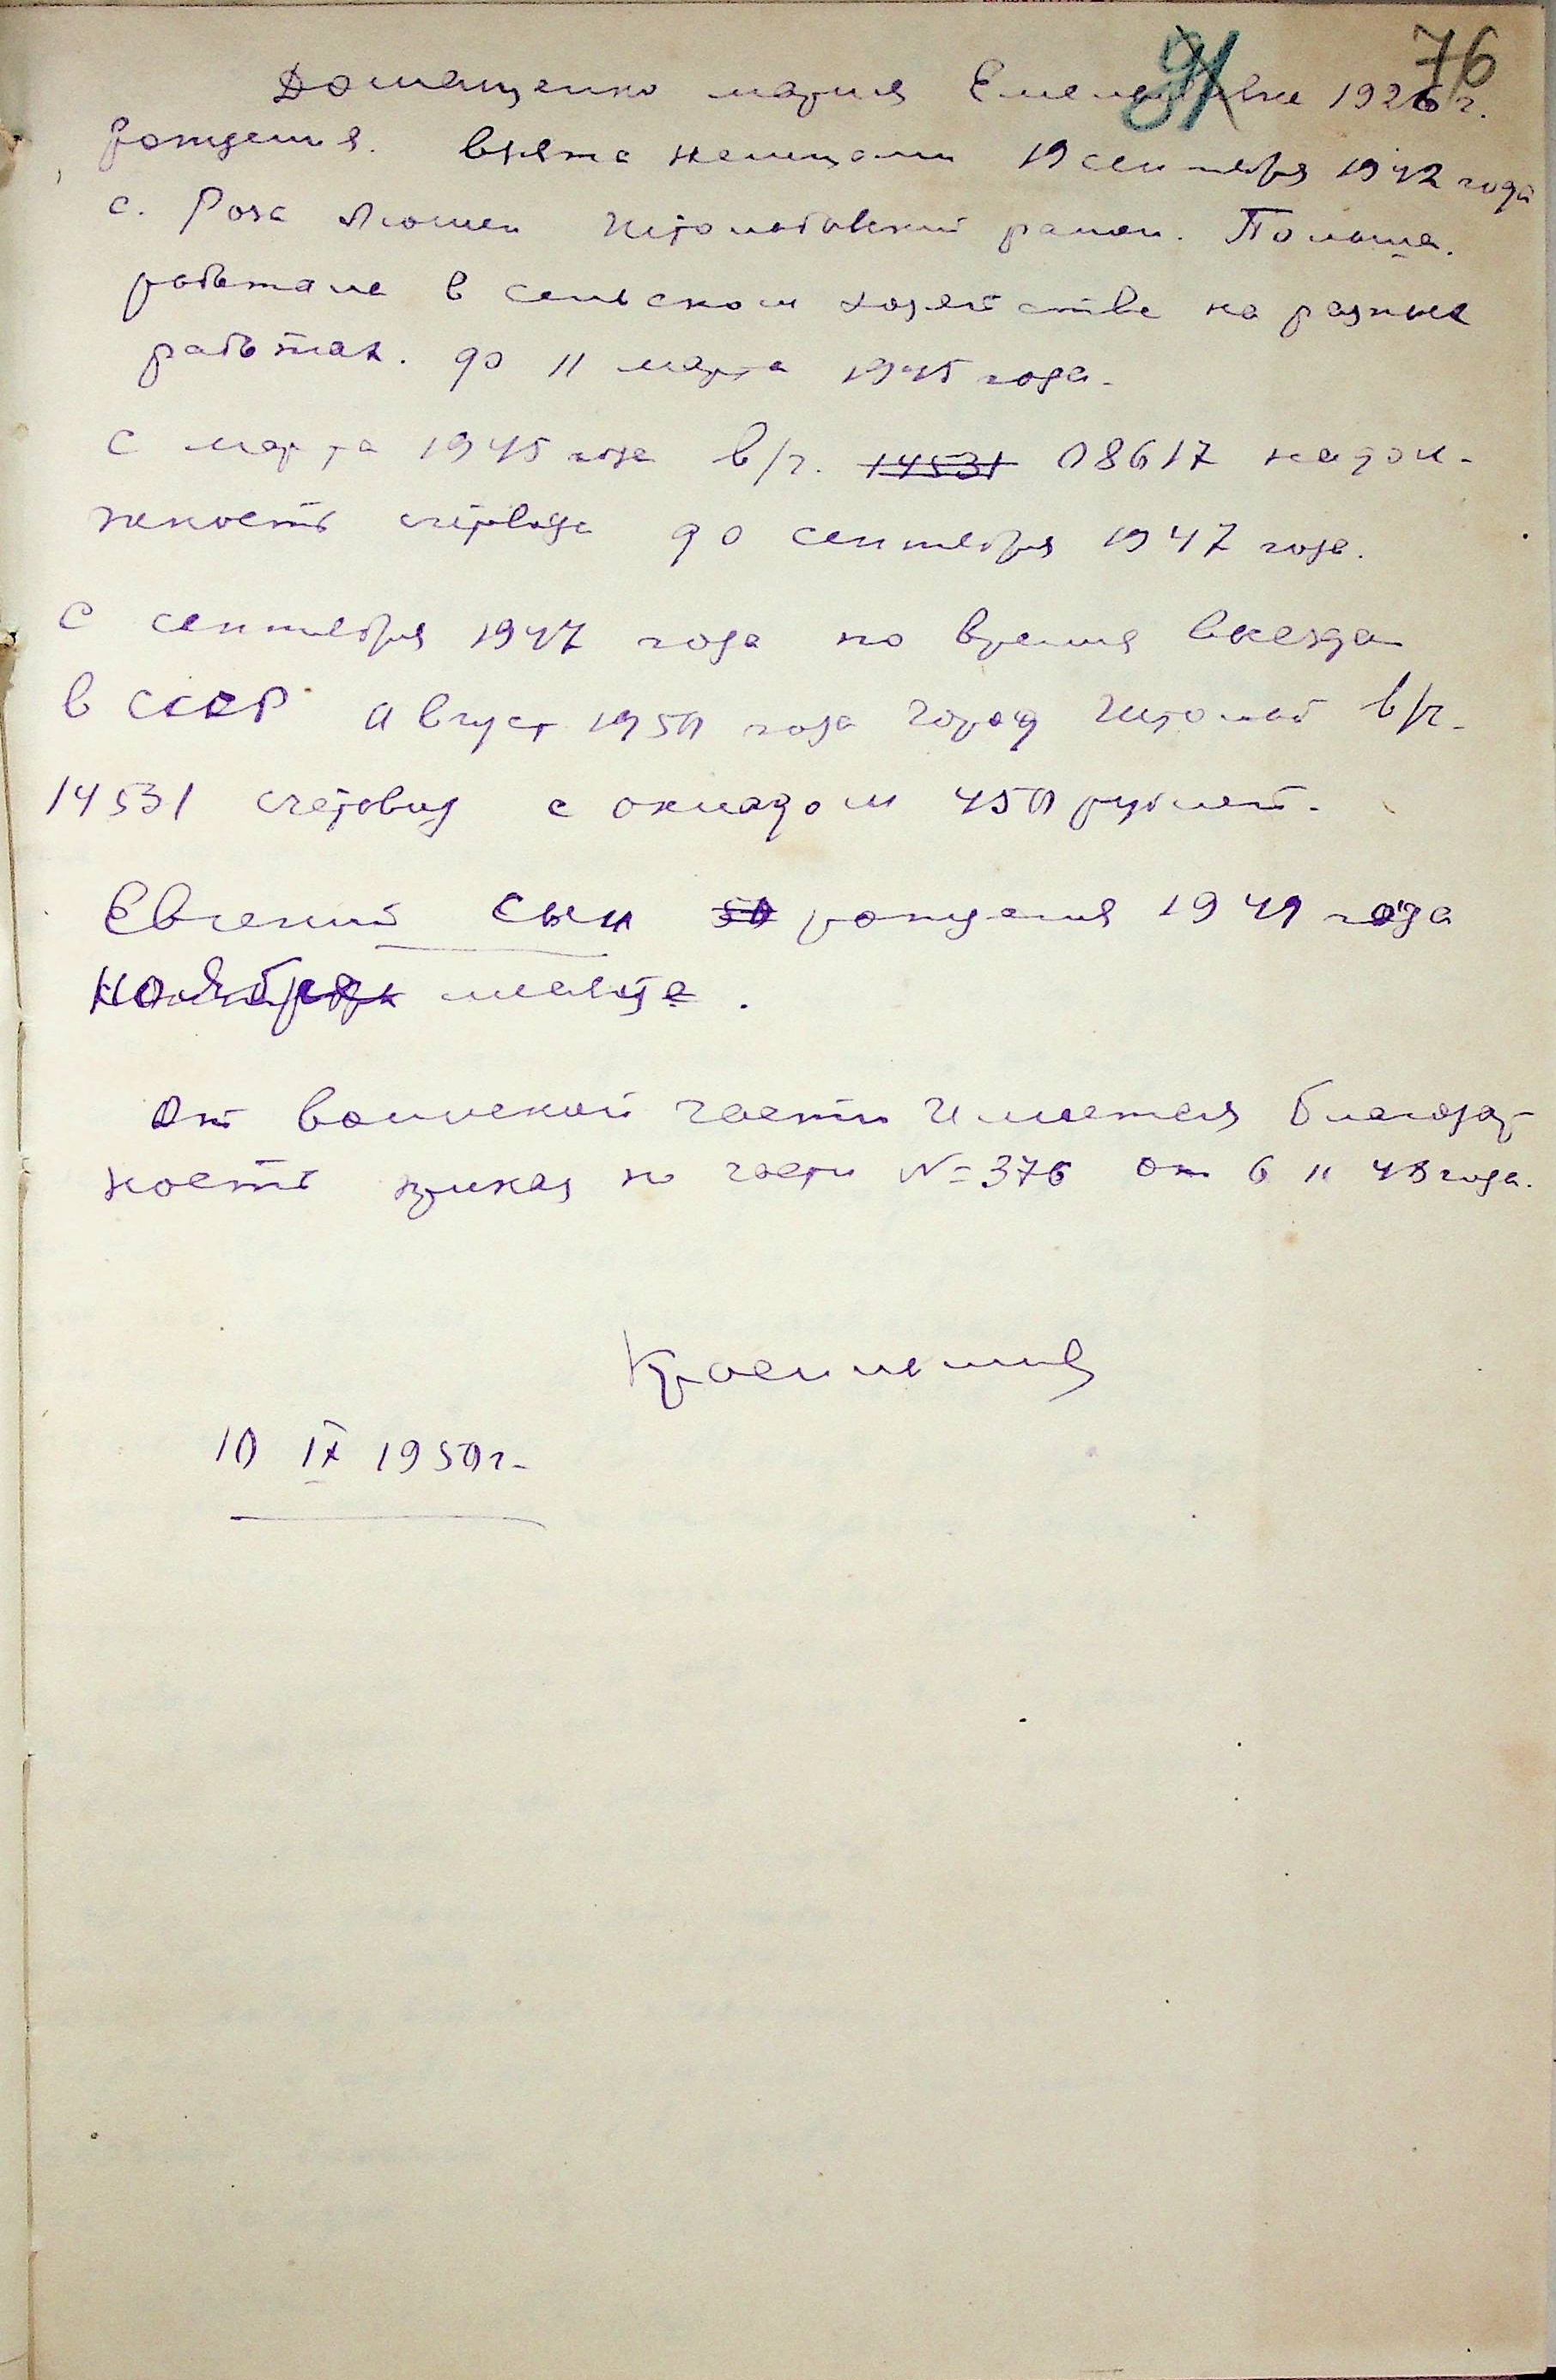 76
Домащенко мария Емельяновна 1926 г.
рождения. взята немцами 19 сентября 1942 года
с. Роза Люшен Штольповский район. Польша.
работала в сельском хозяйстве на разных
работах. до 11 марта 1945 года.
С марта 1945 года в/ч. 14531 08617 на дол-
жность счетовода до сентября 1947 года.
С сентября 1947 года по время въезда
в СССР август 1950 года город Штольп в/ч.
14531 счетовод с окладом 450 рублей.
Евгений сын 50 рождения 1949 года
ноября месяца.
От воинской части Имеется благодар-
ность приказ по части №376 от 6 11 48 года.
10 IX 1950 г.